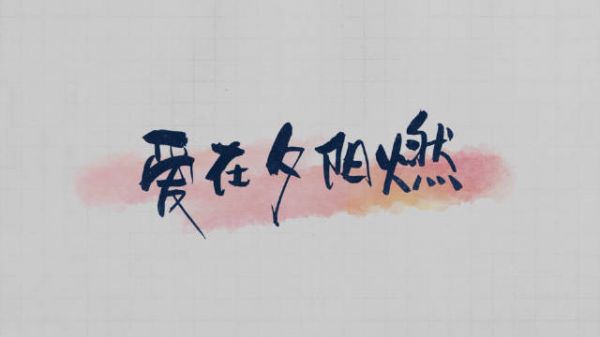 爱在夕阳燃